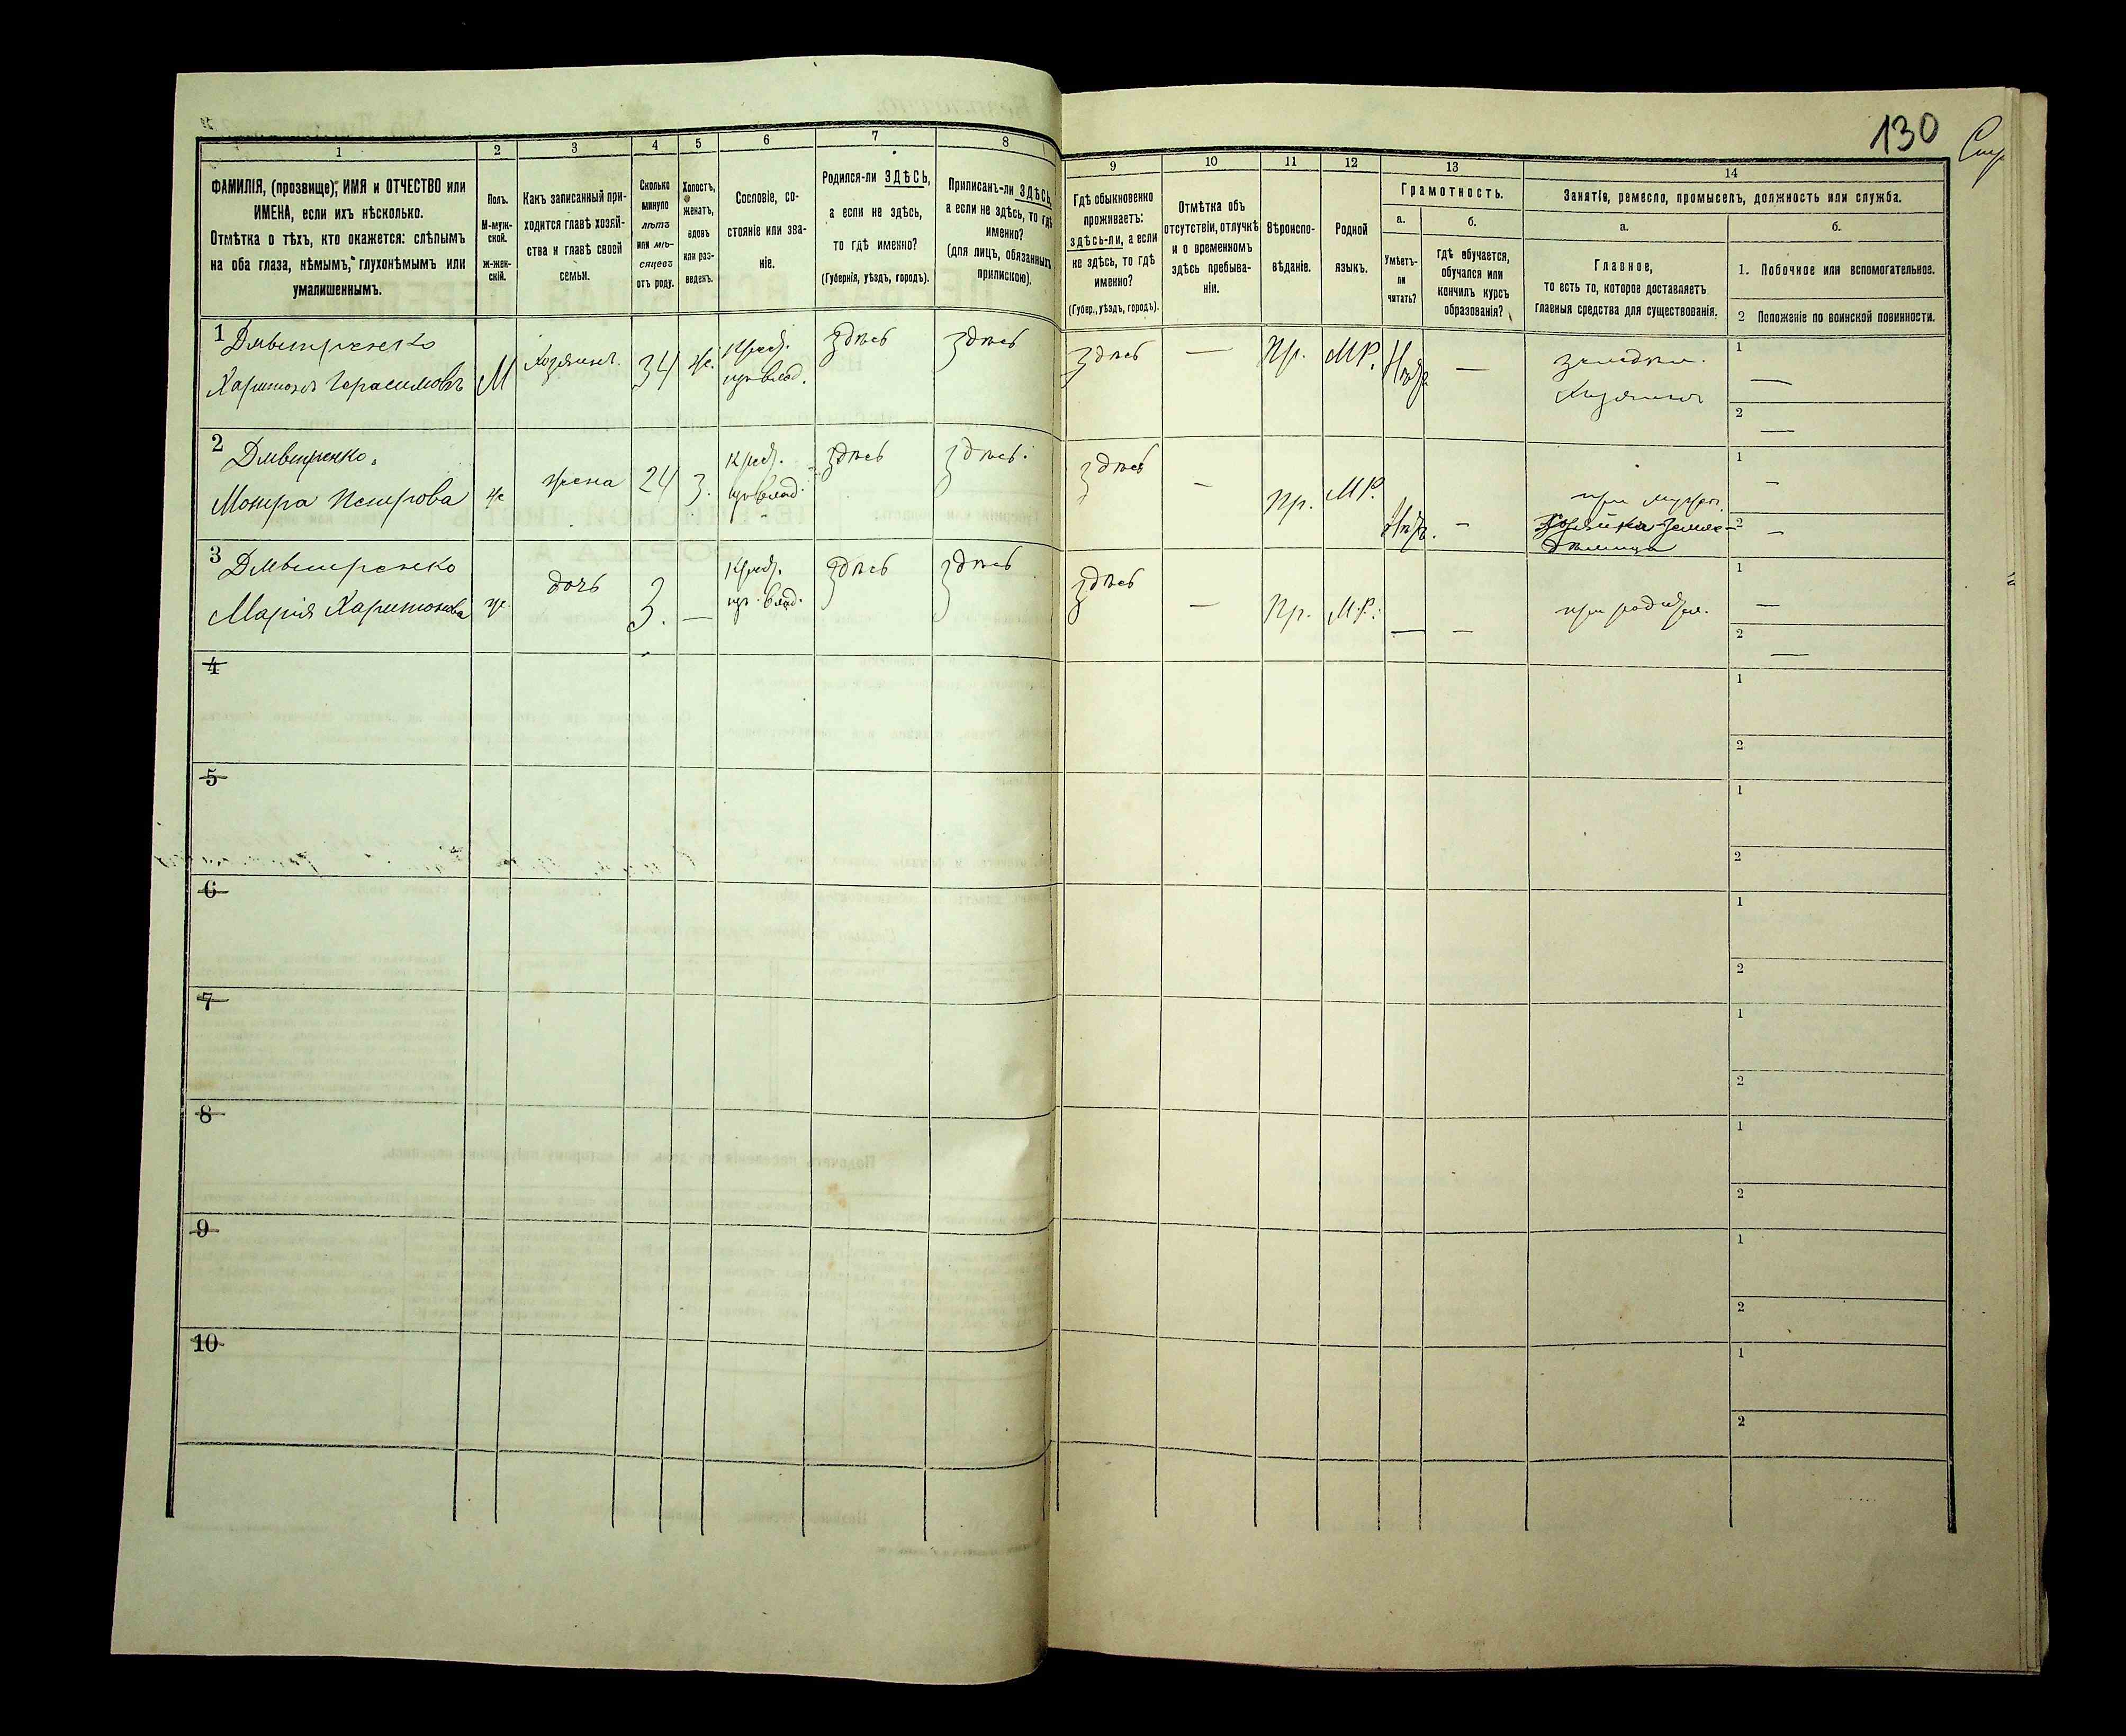 130
1 2 3 4 5 6 7 8
ФАМИЛІЯ, (прозвище), ИМЯ и ОТЧЕСТВО или
ИМЕНА, если ихъ нѣсколько.
Отмѣтка о тѣхъ, кто окажется: слѣпымъ
на оба глаза, нѣмымъ, глухонѣмымъ или
умалишеннымъ.
Полъ.
М-муж-
ской.
ж-жен-
скій.
Какъ записанный при-
ходится главѣ хозяй-
ства и главѣ своей
семьи.
Сколько
минуло
лѣтъ
или мѣ-
сяцевъ
отъ роду.
Холостъ,
женатъ,
вдовъ
или раз-
веденъ.
Сословіе, со-
стояніе или зва-
ніе.
Родился-ли ЗДѢСЬ,
а если не здѣсь,
то гдѣ именно?
(Губернія, уѣздъ, городъ).
Приписанъ-ли ЗДѢСЬ,
а если не здѣсь, то гдѣ
именно?
(для лицъ, обязанныхъ
припискою).
9 10 11 12 13 14
Гдѣ обыкновенно
проживаетъ:
здѣсь-ли, а если
не здѣсь, то гдѣ
именно?
(Губер., уѣздъ, городъ).
Отмѣтка объ
отсутствіи, отлучкѣ
и о временномъ
здѣсь пребыва-
ніи.
Вѣроиспо-
вѣданіе.
Родной
языкъ.
Грамотность.
а. б.
Умѣетъ-
ли
читать?
Гдѣ обучается,
обучался или
кончилъ курсъ
образованія?
Занятія, ремесло, промыселъ, должность или служба.
а. б.
Главное,
то есть то, которое доставляетъ
главныя средства для существованія.
1. Побочное или вспомогательное.
2 Положеніе по воинской повинности.
1 Дмвитренко
Харитонъ Герасимовъ М Хозяинъ. 34 ж. Крест. здѣсь здѣсь здѣсь — Пр. М Р. — 1 —
Хозяинъ 2 —
2 Дмвитренко
Петрова ж жена 24 З. Крест. здѣсь здѣсь здѣсь - Пр. М Р. - 1 -
при
Хозяйка земле-
дѣлица 2 -
3 Дмвитренко
Марія Харитонова ж. дочь 3. — Крест. здѣсь здѣсь здѣсь — Пр. М.Р. — — 1 —
2 —
4 1
2
5 1
2
6 1
2
7 1
2
8 1
2
9 1
2
10 1
2